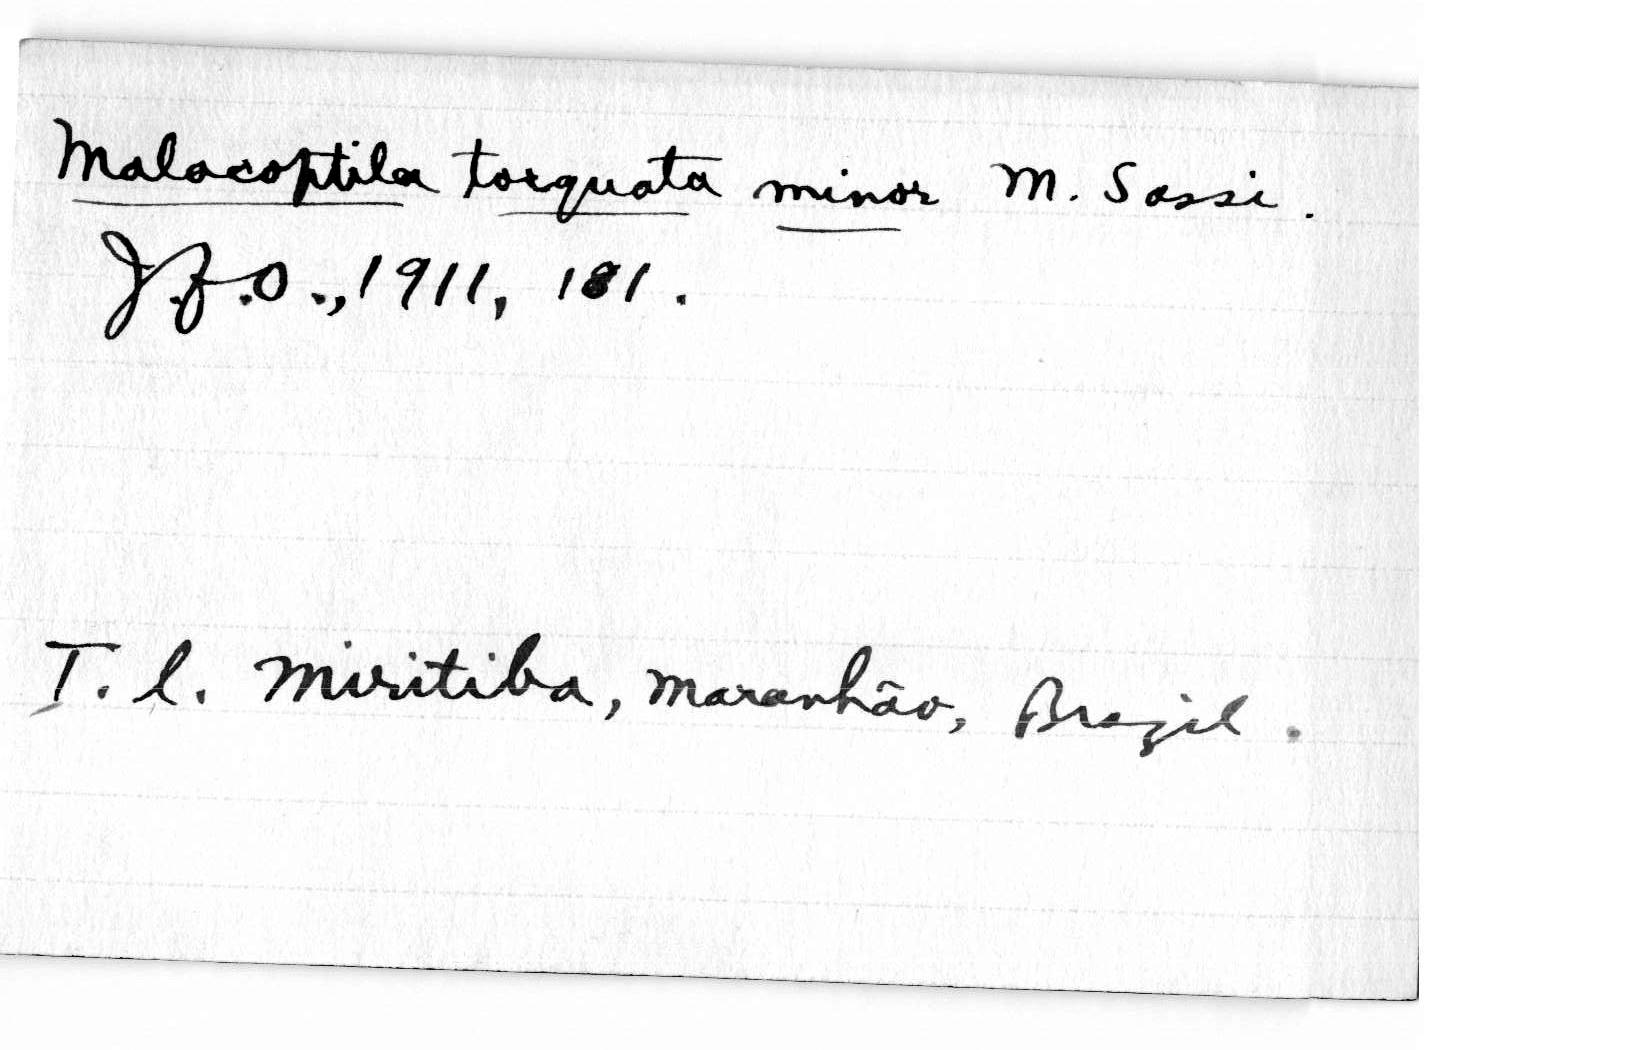 Malacoptila torquata minor M. Sassi.
J.f.O., 1911, 181.
T. l. Miritiba, Maranhão, Brazil.